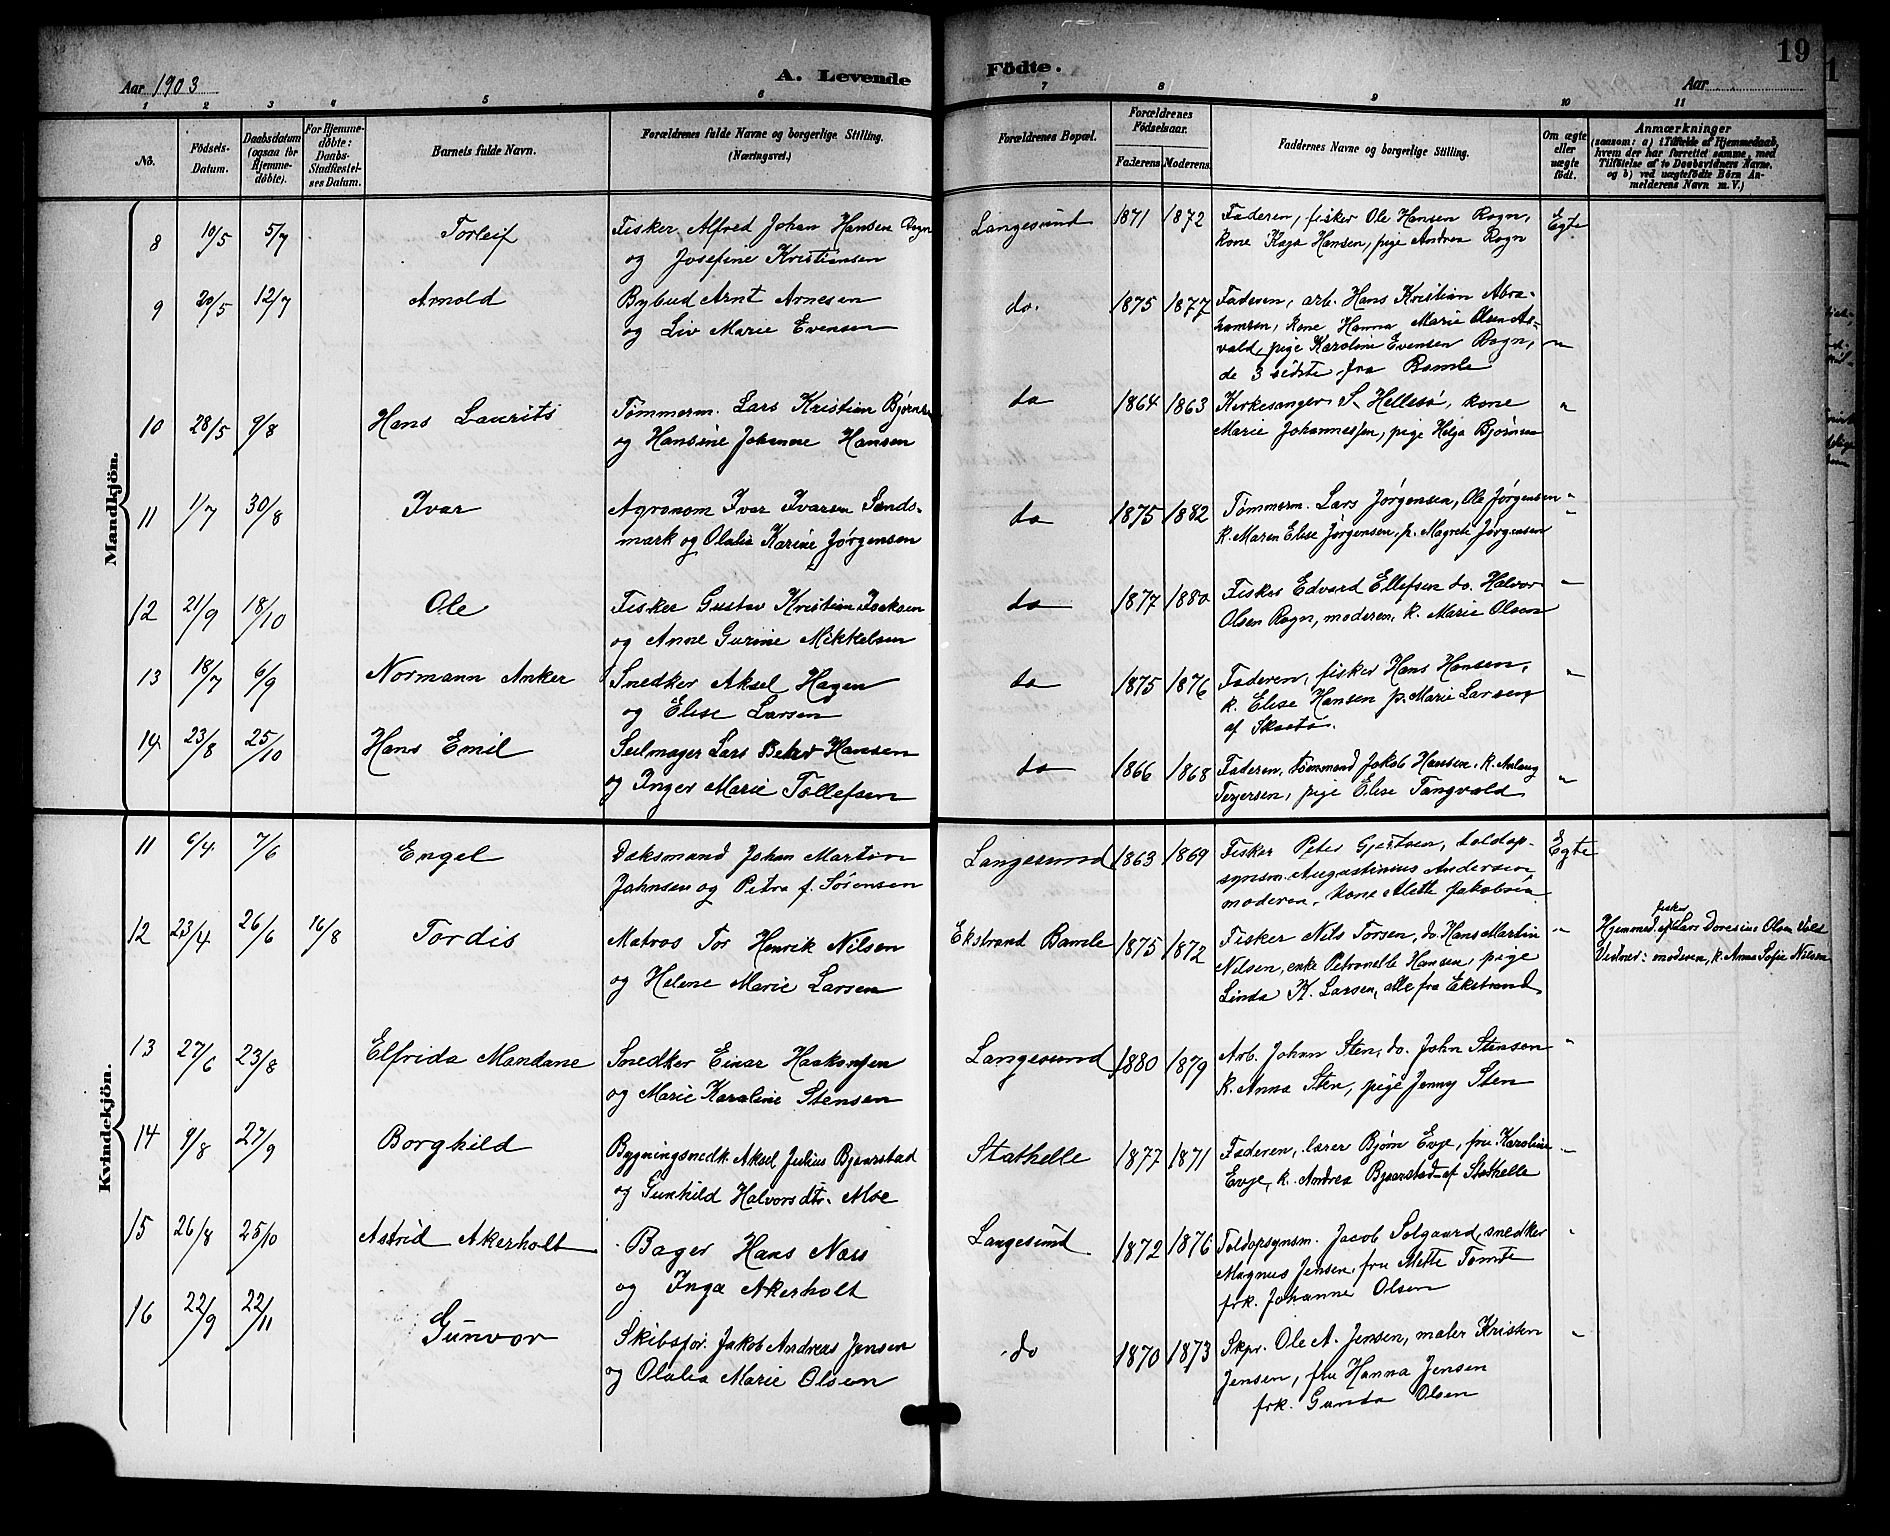 Aar 1903
A. Levende Födte.
19
Aar
1 2 3 4 5 6 7 8 9 10 11
No.
Födsels-Datum.
Daabsdatum (ogsaa for Hjemme-döbte).
For Hjemme-döbte: Daabs-Stadfæstel-ses Datum.
Barnets fulde Navn.
Forældrenes fulde Navne og borgerlige Stilling. (Næringsvei.)
Forældrenes Bopæl.
Forældrenes Födselsaar.
Faderens Moderens
Faddernes Navne og borgerlige Stilling.
Om ægte eller uægte födt.
Anmærkninger
(saasom: a) i Tilfælde af Hjemmedaab,
hvem der har forrettet samme, med
Tilföielse af to Daabsvidners Navne,
og b) ved uægtefödte Börn An-
melderens Navn m. V.)
Mandkjön.
8 10/5 5/7 Torleif
Fisker Alfred Johan Hansen Rogn
og Josefine Kristiansen
Langesund 1871 1872
Faderen, fisker Ole Hansen Rogn,
kone Kaja Hansen, pige Andrea Rogn
Egte
9 20/5 12/7 Arnold
Bybud Arnt Arnesen
og Liv Marie Evensen
do. 1875 1877
Faderen, arb. Hans Kristian Abra-
hamsen, kone Hanna Marie Olsen As-
vald, pige Karoline Evensen Rogn,
de 3 sidste fra Bamle
"
10 28/5 9/8 Hans Laurits
Tømmerm. Lars Kristian Bjørnsen
og Hansine Johanne Hansen
do 1864 1863
Kirkesanger S. Hellesø, kone
Marie Johannessen, pige Helga Bjørnsen
"
11 1/7 30/8 Ivar
Agronom Ivar Ivarsen Sands-
mark og Olalia Karine Jørgensen
do 1875 1882
Tømmerm. Lars Jørgensen, Ole Jørgensen
k. Maren Elise Jørgensen, p. Magrete Jørgensen
"
"
12 21/9 18/10 Ole
Fisker Gustav Kristian Isaksen
og Anne Gurine Mikkelsen
do 1877 1880
Fisker Edvard Ellefsen do. Halvor
Olsen Rogn, moderen, k. Marie Olsen
"
13 18/7 6/9 Normann Anker
Snedker Aksel Hagen
og Elise Larsen
do 1875 1876
Faderen, fisker Hans Hansen,
k. Elise Hansen p. Marie Larsen,
af Skaatø.
"
14 23/8 25/10 Hans Emil
Seilmager Lars Peter Hansen
og Inger Marie Tollefsen
do 1866 1868
Faderen, tømmermd Jakob Hansen, k. Aslaug
Terjersen, pige Elise Tangvald
"
Kvindekjön.
11 6/4 7/6 Engel
Dæksmand Johan Martin
Jahnsen og Petra f. Sørensen
Langesund 1863 1869
Fisker Peter Gjertsen, toldop-
synsm. Augustinius Andersen,
moderen, kone Alette Jakobsen
Egte
12 23/4 26/6 16/8 Tordis
Matros Tor Henrik Nilsen
og Helene Marie Larsen
Ekstrand Bamle 1875 1872
Fisker Nils Torsen, do. Hans Martin
Nilsen, enke Petronelle Hansen, pige
Linda K. Larsen, alle fra Ekstrand
"
fisker
Hjemmed. af Lars Doresius Olsen Vold
Vidner: moderen, k. Anne Sofie Nilsen
13 27/6 23/8 Elfrida Mandane
Snedker Einar Haakonsen
og Marie Karoline Stensen
Langesund 1880 1879
Arb. Johan Sten, do. John Stensen
k. Anna Sten, pige Jenny Sten
"
14 9/8 27/9 Borghild
Bygningsnedk. Aksel Julius Bjaarstad
og Gunhild Halvorsdtr. Moe
Stathelle 1877 1871
Faderen, lærer Bjørn Evje, fru Karoline
Evje, k. Andrea Bjaarstad af Stathelle
"
15 26/8 25/10 Astrid Akerholt
Bager Hans Næss
og Inga Akerholt
Langesund 1872 1876
Toldopsynsm. Jacob Solgaard, snedker
Magnus Jensen, fru Mette Tomte
frk. Johanne Olsen
"
16 22/9 22/11 Gunvor
Skibsfør. Jakob Andreas Jensen
og Olalia Marie Olsen
do 1870 1873
Skpr. Ole A. Jensen, maler Kristen
Jensen, fru Hanna Jensen
frk. Gunda Olsen
"